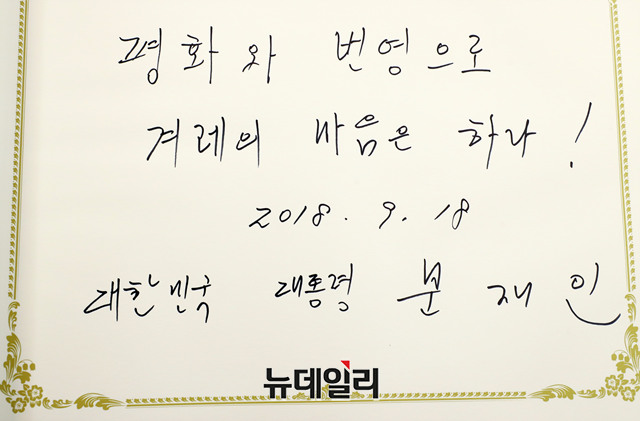 평화와 번영으로
겨레의 마음은 하나!
2018. 9. 18
대한민국 대통령 문재인
뉴데일리